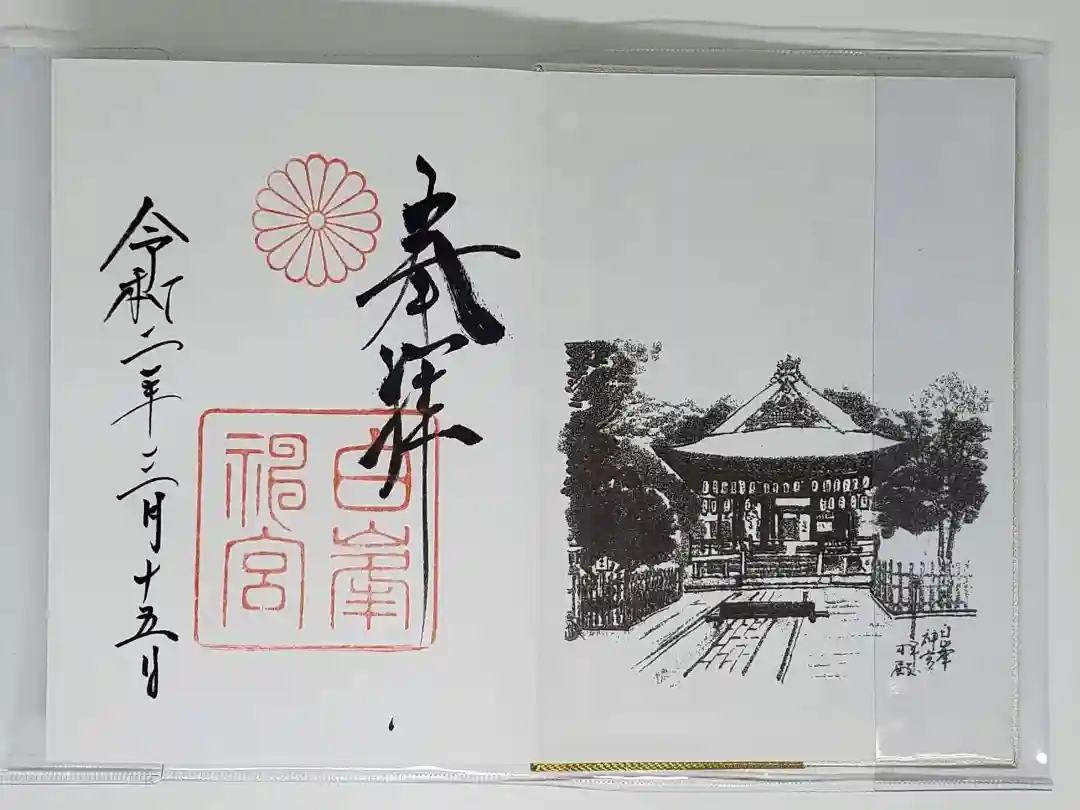 奉拝
白峯
神宮
令和二年三月十五日
白峯
神宮
拝殿